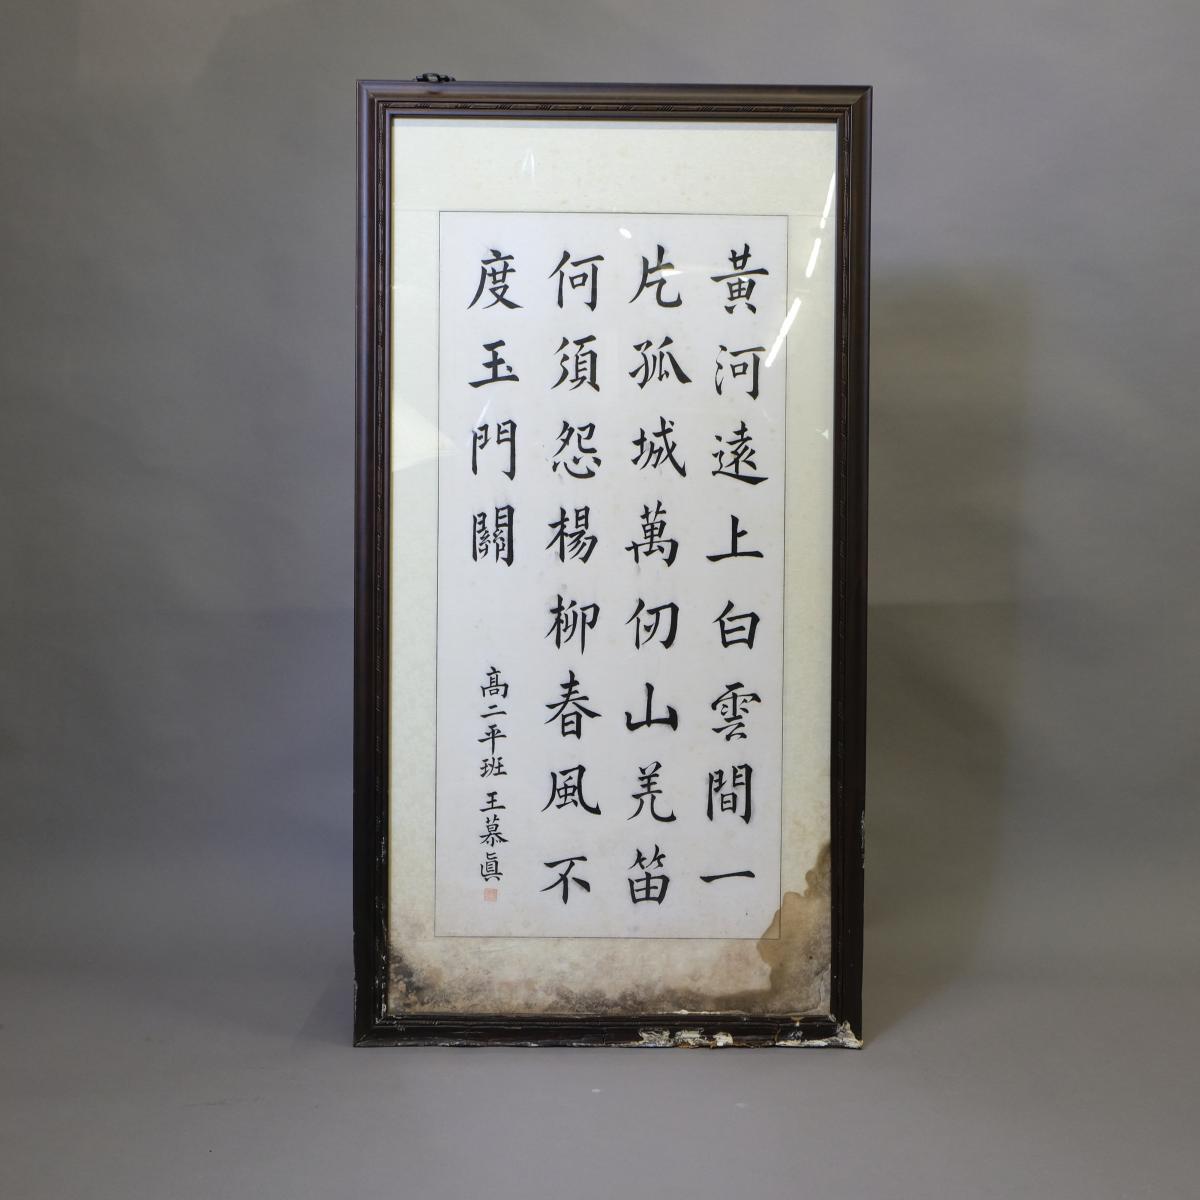 黃河遠上白雲間一
片孤城萬仞山羌笛
何須怨楊柳春風不
度玉門關
高二平班 王慕眞